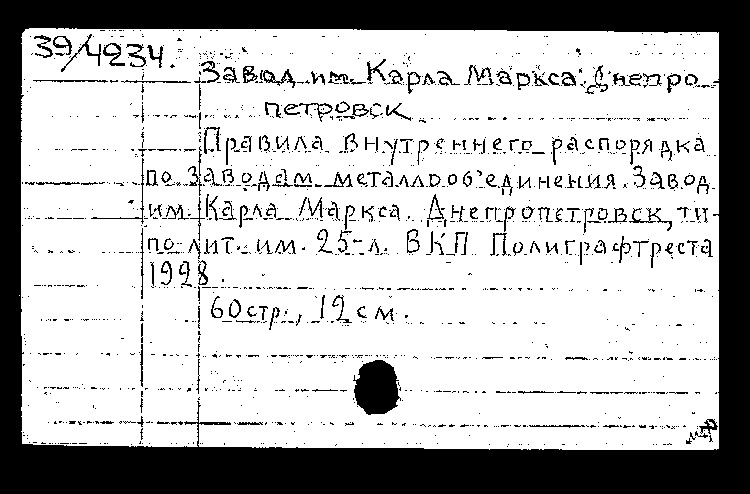 39/4234.
Завод им. Карла Маркса. Днепро-
петровск
Правила внутреннего распорядка
по заводам металлооб'единения. Завод
им. Карла Маркса. Днепропетровск, ти-
по-лит. им. 25-л. ВКП Полиграфтреста
1928.
60 стр., 12 см.